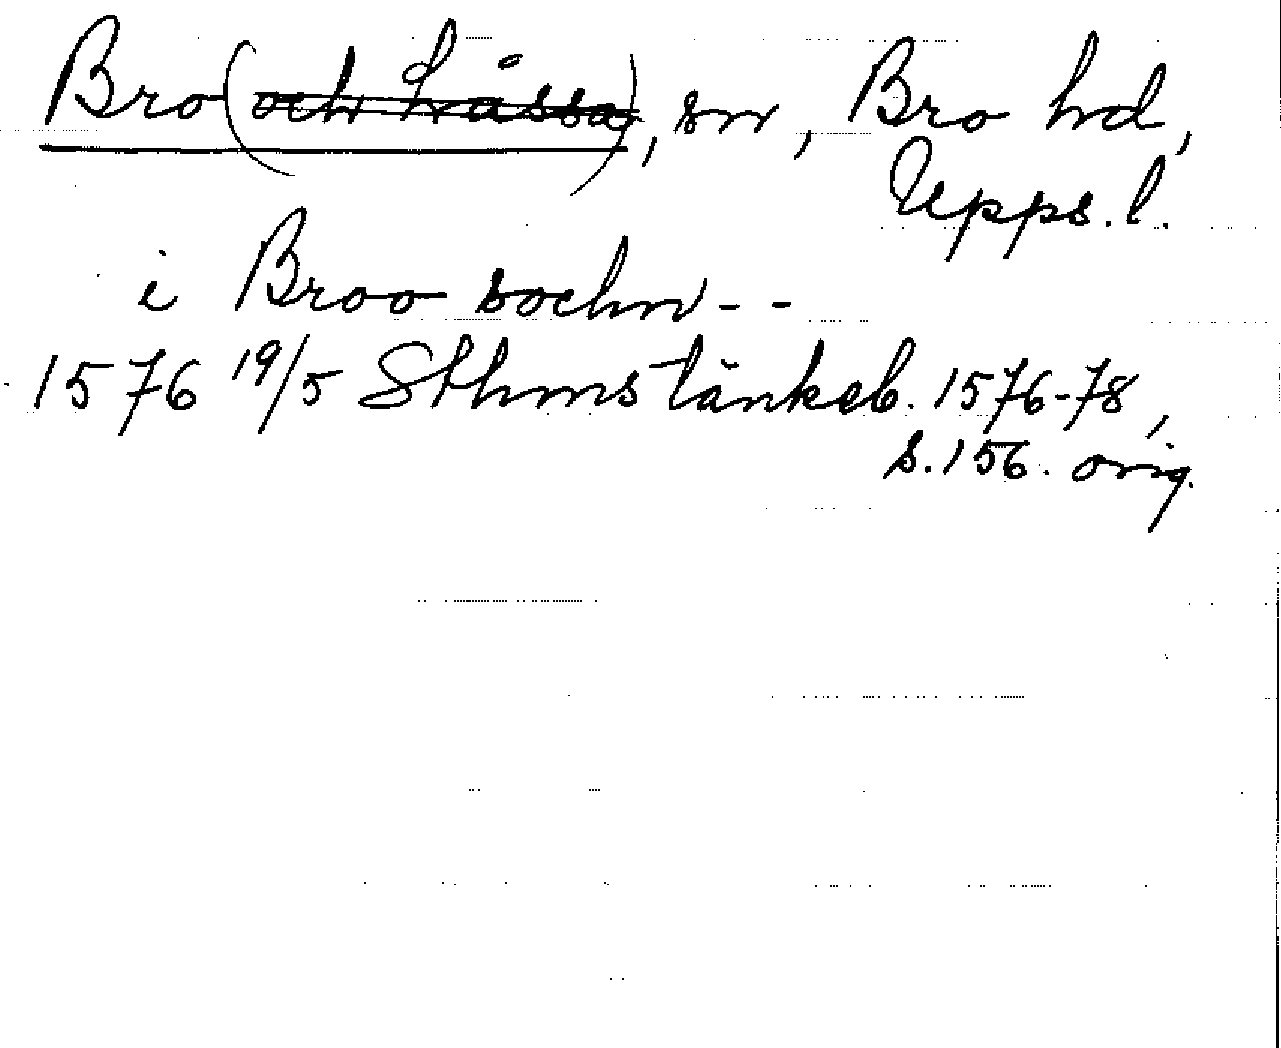 Bro (och Låssa), sn, Bro hd,
Upps. l.
i Broo sochn - -
1576 19/5 Sthms tänkeb. 1576-78,
s. 156. orig.